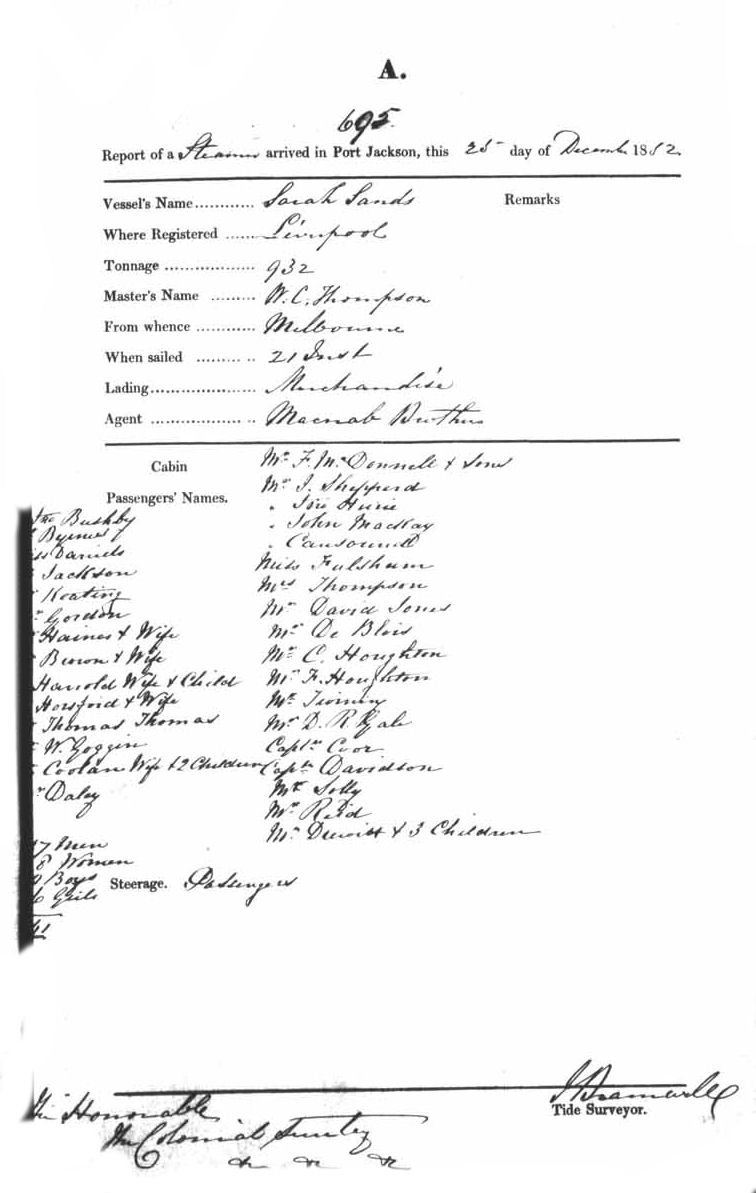 A.
695.
Report of a Steamer arrived in Port Jackson, this 25 day of December 1852.
Vessel's Name............ Sarah Sands
Remarks
Where Registered ...... Liverpool
Tonnage .................. 932
Master's Name ......... W. C. Thompson
From whence ............ Melbourne
When sailed ............ 21 Inst
Lading..................... Merchandise
Agent .................... Macnab Brothers
Cabin
Passengers' Names.
Mr. F. McDonnell & Sons
Mr. J. Shepperd
" Hurie
" John MacKay
"
Miss Fulsham
Mrs Thompson
Mr David Jones
Mr De Blois
Mr C. Houghton
Mr F. Houghton
Mr Twining
Mr D. R. Gale
Captn Coor
Captn Davidson
Mr Solly
Mr Reid
Mr & 3 Children
Bushby
Byrnes
Daniels
Jackson
Keating
Gordon
Haines & Wife
Brown & Wife
Harrold Wife & Child
Horsford & Wife
Thomas Thomas
W. Goggin
Coolan Wife & 2 Children
Daley
7 Men
8 Women
Boys
6 Girls
Steerage. Passengers
Tide Surveyor.
The Honorable
The Colonial
&c &c &c